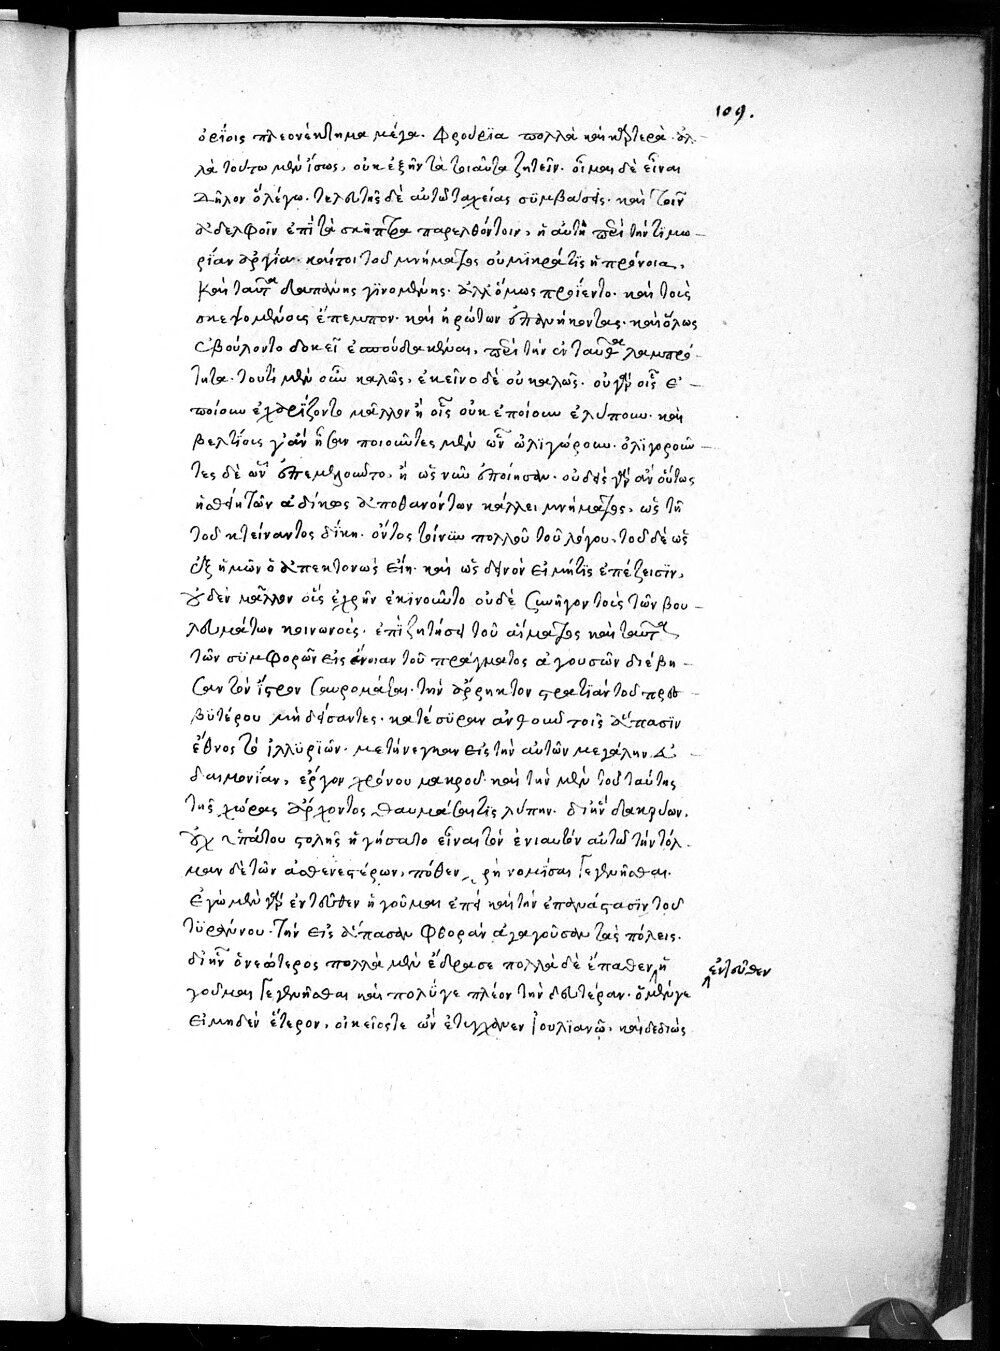 109.
ὁρίοις πλεονέκτημα μέγα. Φρούρια πολλὰ καὶ καρτερά. ἀλ-
λὰ τούτω μὲν ἴσως, οὐκ ἐξῆν τὰ τοιαῦτα ζητεῖν. οἶμαι δὲ εἶναι
δῆλον ὃ λέγω. τελευτῆς δὲ αὐτῶ ταχείας συμβάσης. καὶ τοῖν
ἀδελφοῖν ἐπὶ τὰ σκῆπτρα παρελθόντοιν, ἡ αὐτὴ περὶ τὴν τιμω-
ρίαν ἀργία. καίτοι τοῦ μνήματος οὐ μικρά τις ἡ πρόνοια,
καὶ ταῦτα δαπάνης γινομένης. ἀλλ' ὅμως προΐεντο. καὶ τοὺς
σκεψομένους ἔπεμπον. καὶ ἠρώτων ἐπανήκοντας. καὶ ὅλως
ἐβούλοντο δοκεῖν ἐσπουδακέναι, περὶ τὴν ἐνταῦθα λαμπρό-
τητα. τουτὶ μὲν οὖν καλῶς, ἐκεῖνο δὲ οὐ καλῶς. οὐ γὰρ οἷς ἐ-
ποίουν ἐχαρίζοντο μᾶλλον ἢ οἷς οὐκ ἐποίουν ἐλύπουν. καὶ
βελτίους γ' ἂν ἦσαν ποιοῦντες μὲν ὧν ὠλιγώρουν. ὀλιγοροῦν-
τες δὲ ὧν ἐπεμελοῦντο, ἢ ὡς νῦν ἐποίησαν. οὐδεὶς γὰρ ἂν οὕτως
ἡσθείη τῶν ἀδίκως ἀποθανόντων κάλλει μνήματος, ὡς τῇ
τοῦ κτείναντος δίκῃ. ὄντος τοίνυν πολλοῦ τοῦ λόγου, τοῦ δὲ ὡς
ἐξ ἡμῶν ὁ ἀπεκτονὼς εἴη. καὶ ὡς δεινὸν εἰ μή τις ἐπέξεισιν,
οὐδὲν μᾶλλον οἷς ἐχρῆν ἐκινοῦντο οὐδὲ συνῆγον τοὺς τῶν βου-
λευμάτων κοινωνούς. ἐπιζητήσει τοῦ αἵματος καὶ ταῦτα
τῶν συμφορῶν εἰς ἔννοιαν τοῦ πράγματος ἀγουσῶν διέβη-
σαν τὸν ἴστρον σαυρομάται. τὴν ἄρρηκτον στρατιὰν τοῦ πρεσ-
βυτέρου μὴ δείσαντες. κατέσυραν ἀνθοῦν τοῖς ἅπασιν
ἔθνος τὸ ἰλλυριῶν. μετήνεγκαν εἰς τὴν αὐτῶν μεγάλην εὐ-
δαιμονίαν, ἔργον χρόνου μακροῦ. καὶ τὴν μὲν τοῦ ταύτης
τῆς χώρας ἄρχοντος θαυμάσει τις λύπην. δι' ἣν δακρύων,
οὐχ ὑπάτου στολῆς ἡγήσατο εἶναι τὸν ἐνιαυτὸν αὐτῶ τὴν τόλ-
μαν δὲ τῶν ἀσθενεστέρων, πόθεν χρὴ νομίσαι γεγενῆσθαι.
Ἐγὼ μὲν γὰρ ἐντεῦθεν ἡγοῦμαι ἐπεὶ καὶ τὴν ἐπανάστασιν τοῦ
τυράννου. τὴν εἰς ἅπασαν φθορὰν ἀγαγοῦσαν τὰς πόλεις.
δι' ἣν ὁ νεώτερος πολλὰ μὲν ἔδρασε πολλὰ δὲ ἔπαθεν, ἡ ἐντεῦθεν
γοῦμαι γεγενῆσθαι καὶ πολύ γε πλέον τὴν δευτέραν. ὁ μέν γε
εἰ μηδὲν ἕτερον, οἰκεῖός τε ὢν ἐτύγχανεν Ἰουλιανῶ, καὶ δεδιὼς